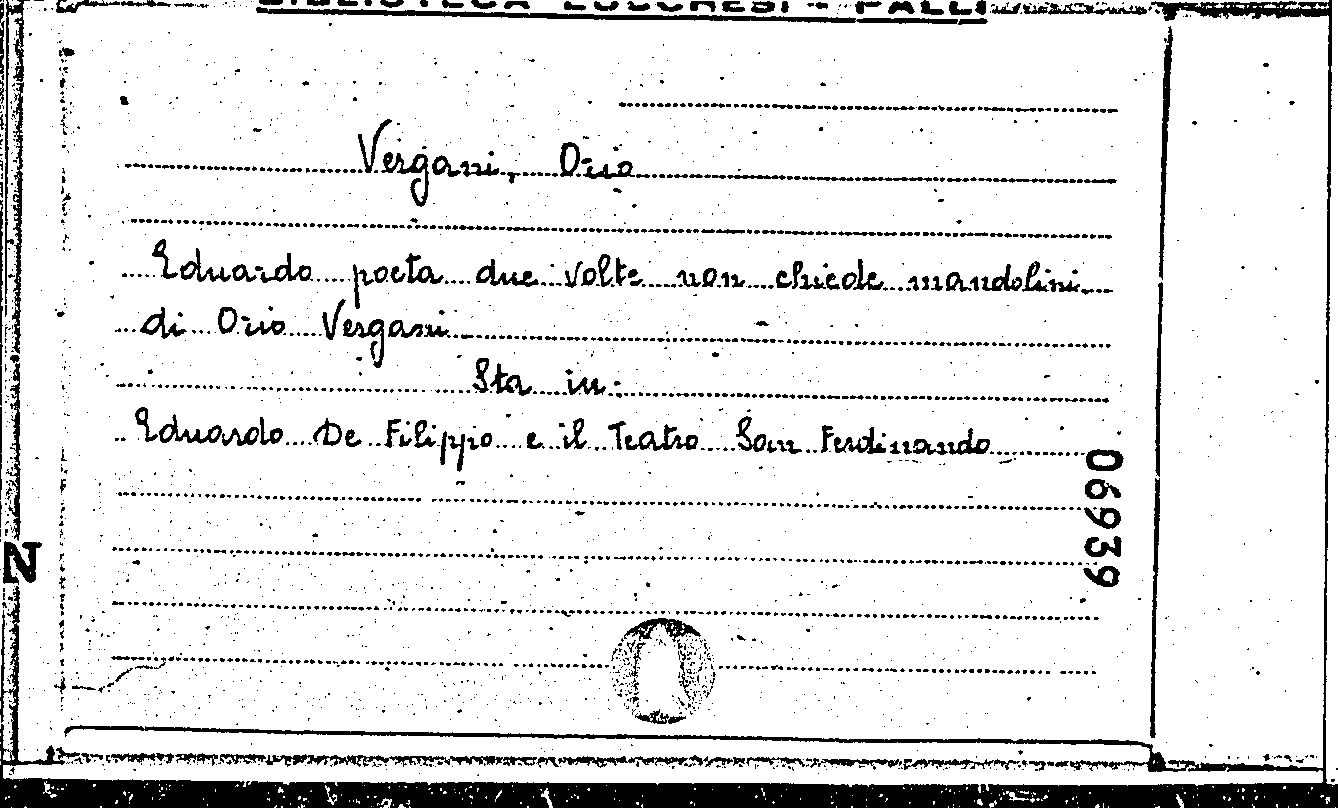 BIBLIOTECA LUCCHESI - PALLI
Vergani, Orio
Eduardo poeta due volte non chiede mandolini
di Orio Vergani
Sta in:
Eduardo De Filippo e il Teatro San Ferdinando
06939
N